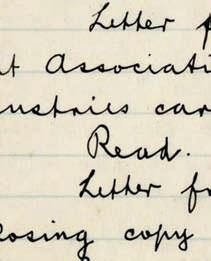 Letter f
t Associati
ustries car
Read.
Letter fr
losing copy